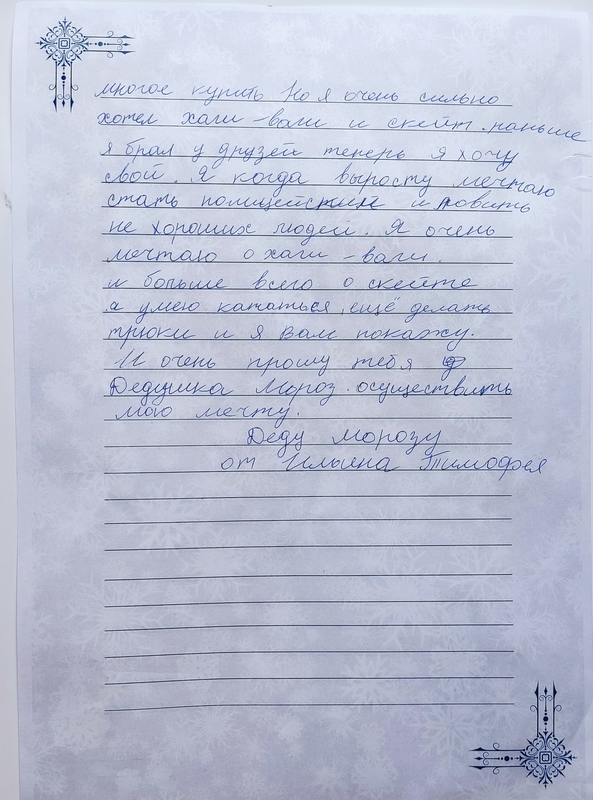 многое купить Но я очень сильно
хотел хаги-ваги и скейт. раньше
я брал у друзей теперь я хочу
свой. Я когда выросту мечтаю
стать полицейский и ловить
не хороших людей. Я очень
мечтаю о хаги-ваги.
и больше всего о скейте
я умею кататься, ещё делать
трюки и я вам покажу.
И очень прошу тебя
Дедушка Мороз осуществить
мою мечту.
Деду Морозу
от Ильина Тимофея